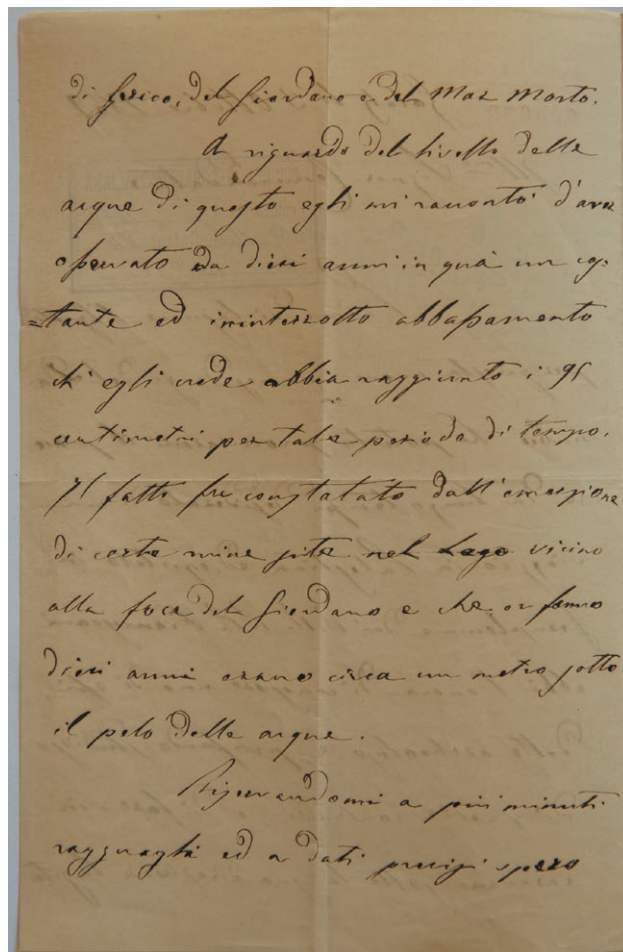 di Gerico, del Giordano e del Mar Morto.
A riguardo del livello delle
acque di questo egli mi raccontò d'aver
osservato da dieci anni in quà un co-
=stante ed ininterrotto abbassamento
ch'egli crede abbia raggiunto i 95
centimetri per tale periodo di tempo.
Il fatto fu constatato dall'emersione
di certe ruine site nel Lago vicino
alla foce del Giordano e che or fanno
dieci anni erano circa un metro sotto
il pelo delle acque.
Riservandomi a più minuti
ragguagli ed a dati precisi spero